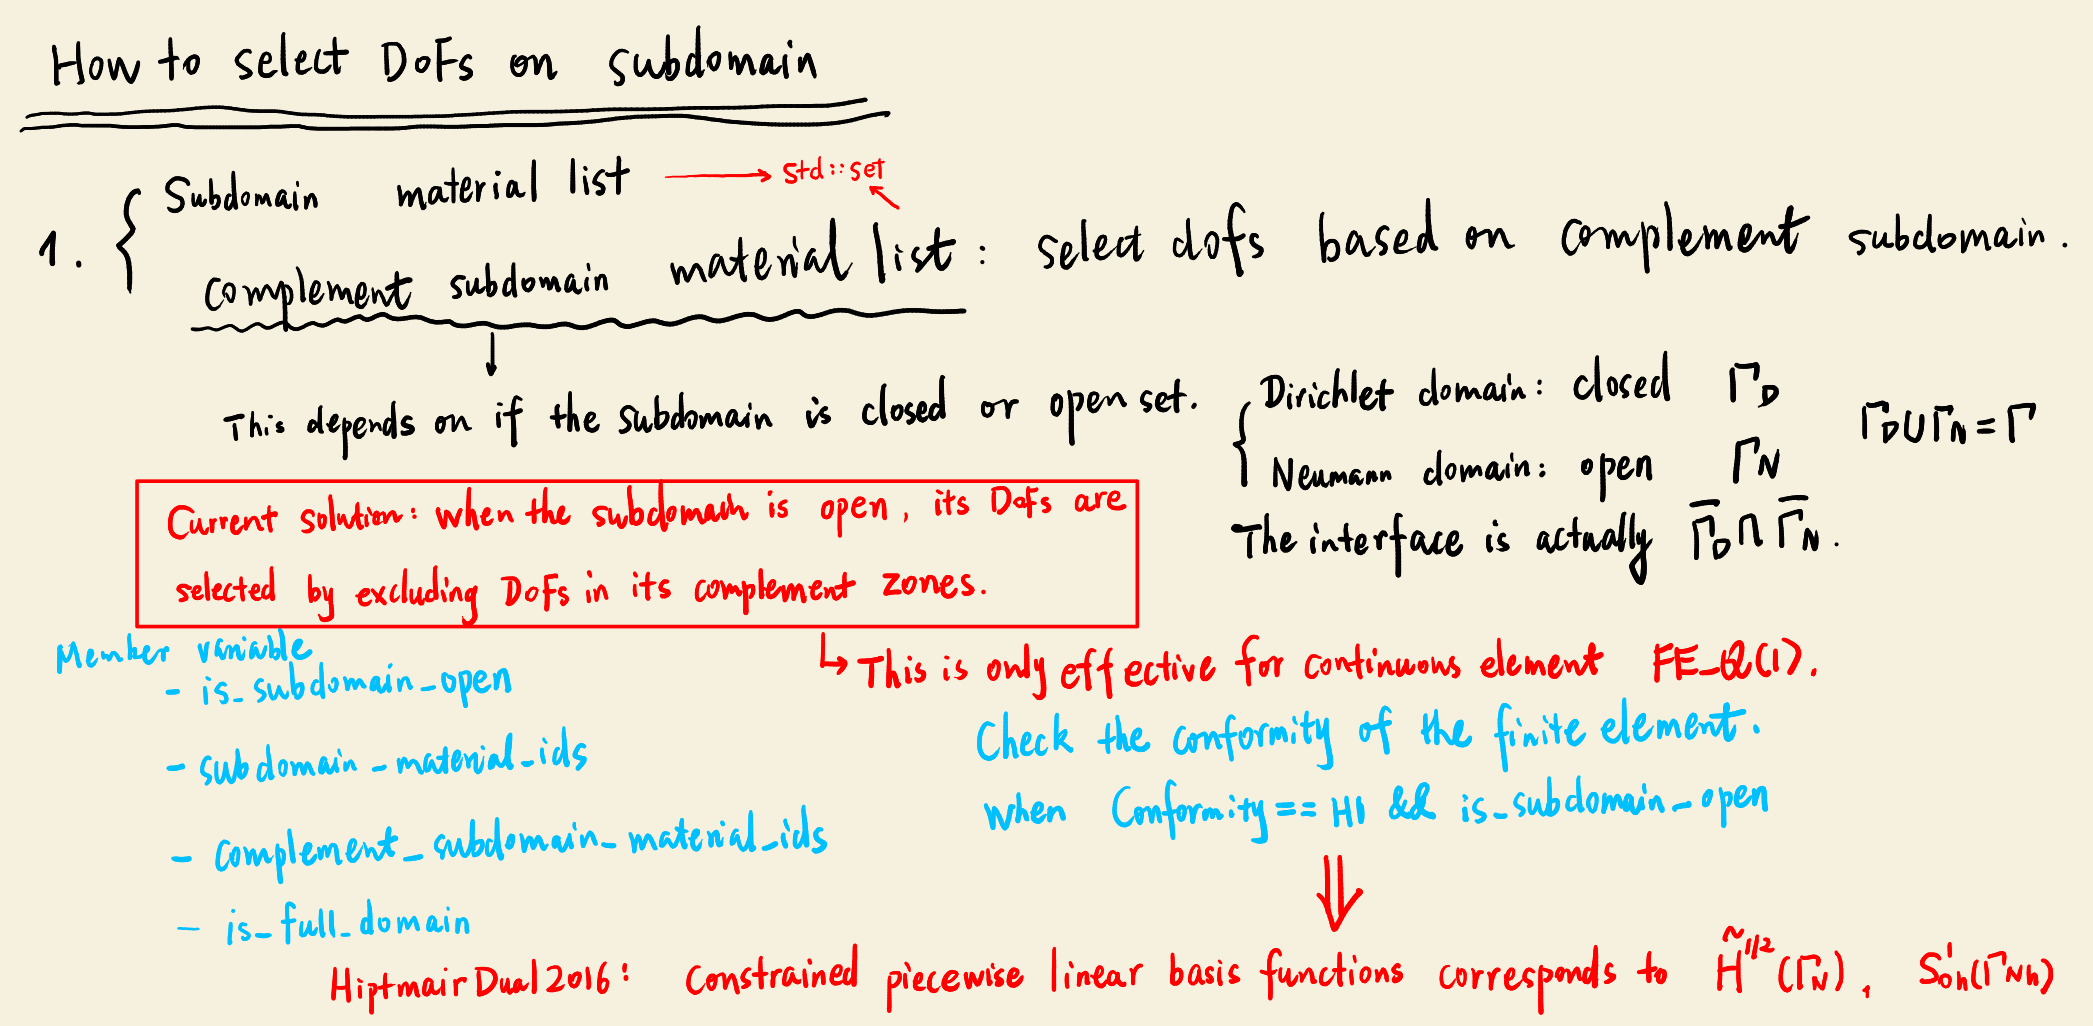 How to select DoFs on subdomain
1. { Subdomain material list → std::set
complement subdomain material list : select dofs based on complement subdomain.
↓
This depends on if the subdomain is closed or open set.
{ Dirichlet domain: closed Γ_D
Neumann domain: open Γ_N
Γ_D ∪ Γ_N = Γ
The interface is actually Γ̅_D ∩ Γ̅_N.
Current solution: when the subdomain is open, its DoFs are
selected by excluding DoFs in its complement zones.
↳ This is only effective for continuous element FE_Q(1).
Member variable
- is_subdomain_open
- subdomain_material_ids
- complement_subdomain_material_ids
- is_full_domain
Check the conformity of the finite element.
when Conformity == H1 && is_subdomain_open
⇓
HiptmairDual2016: Constrained piecewise linear basis functions corresponds to H̃^{1/2}(Γ_N), S^1_{0h}(Γ_{Nh})